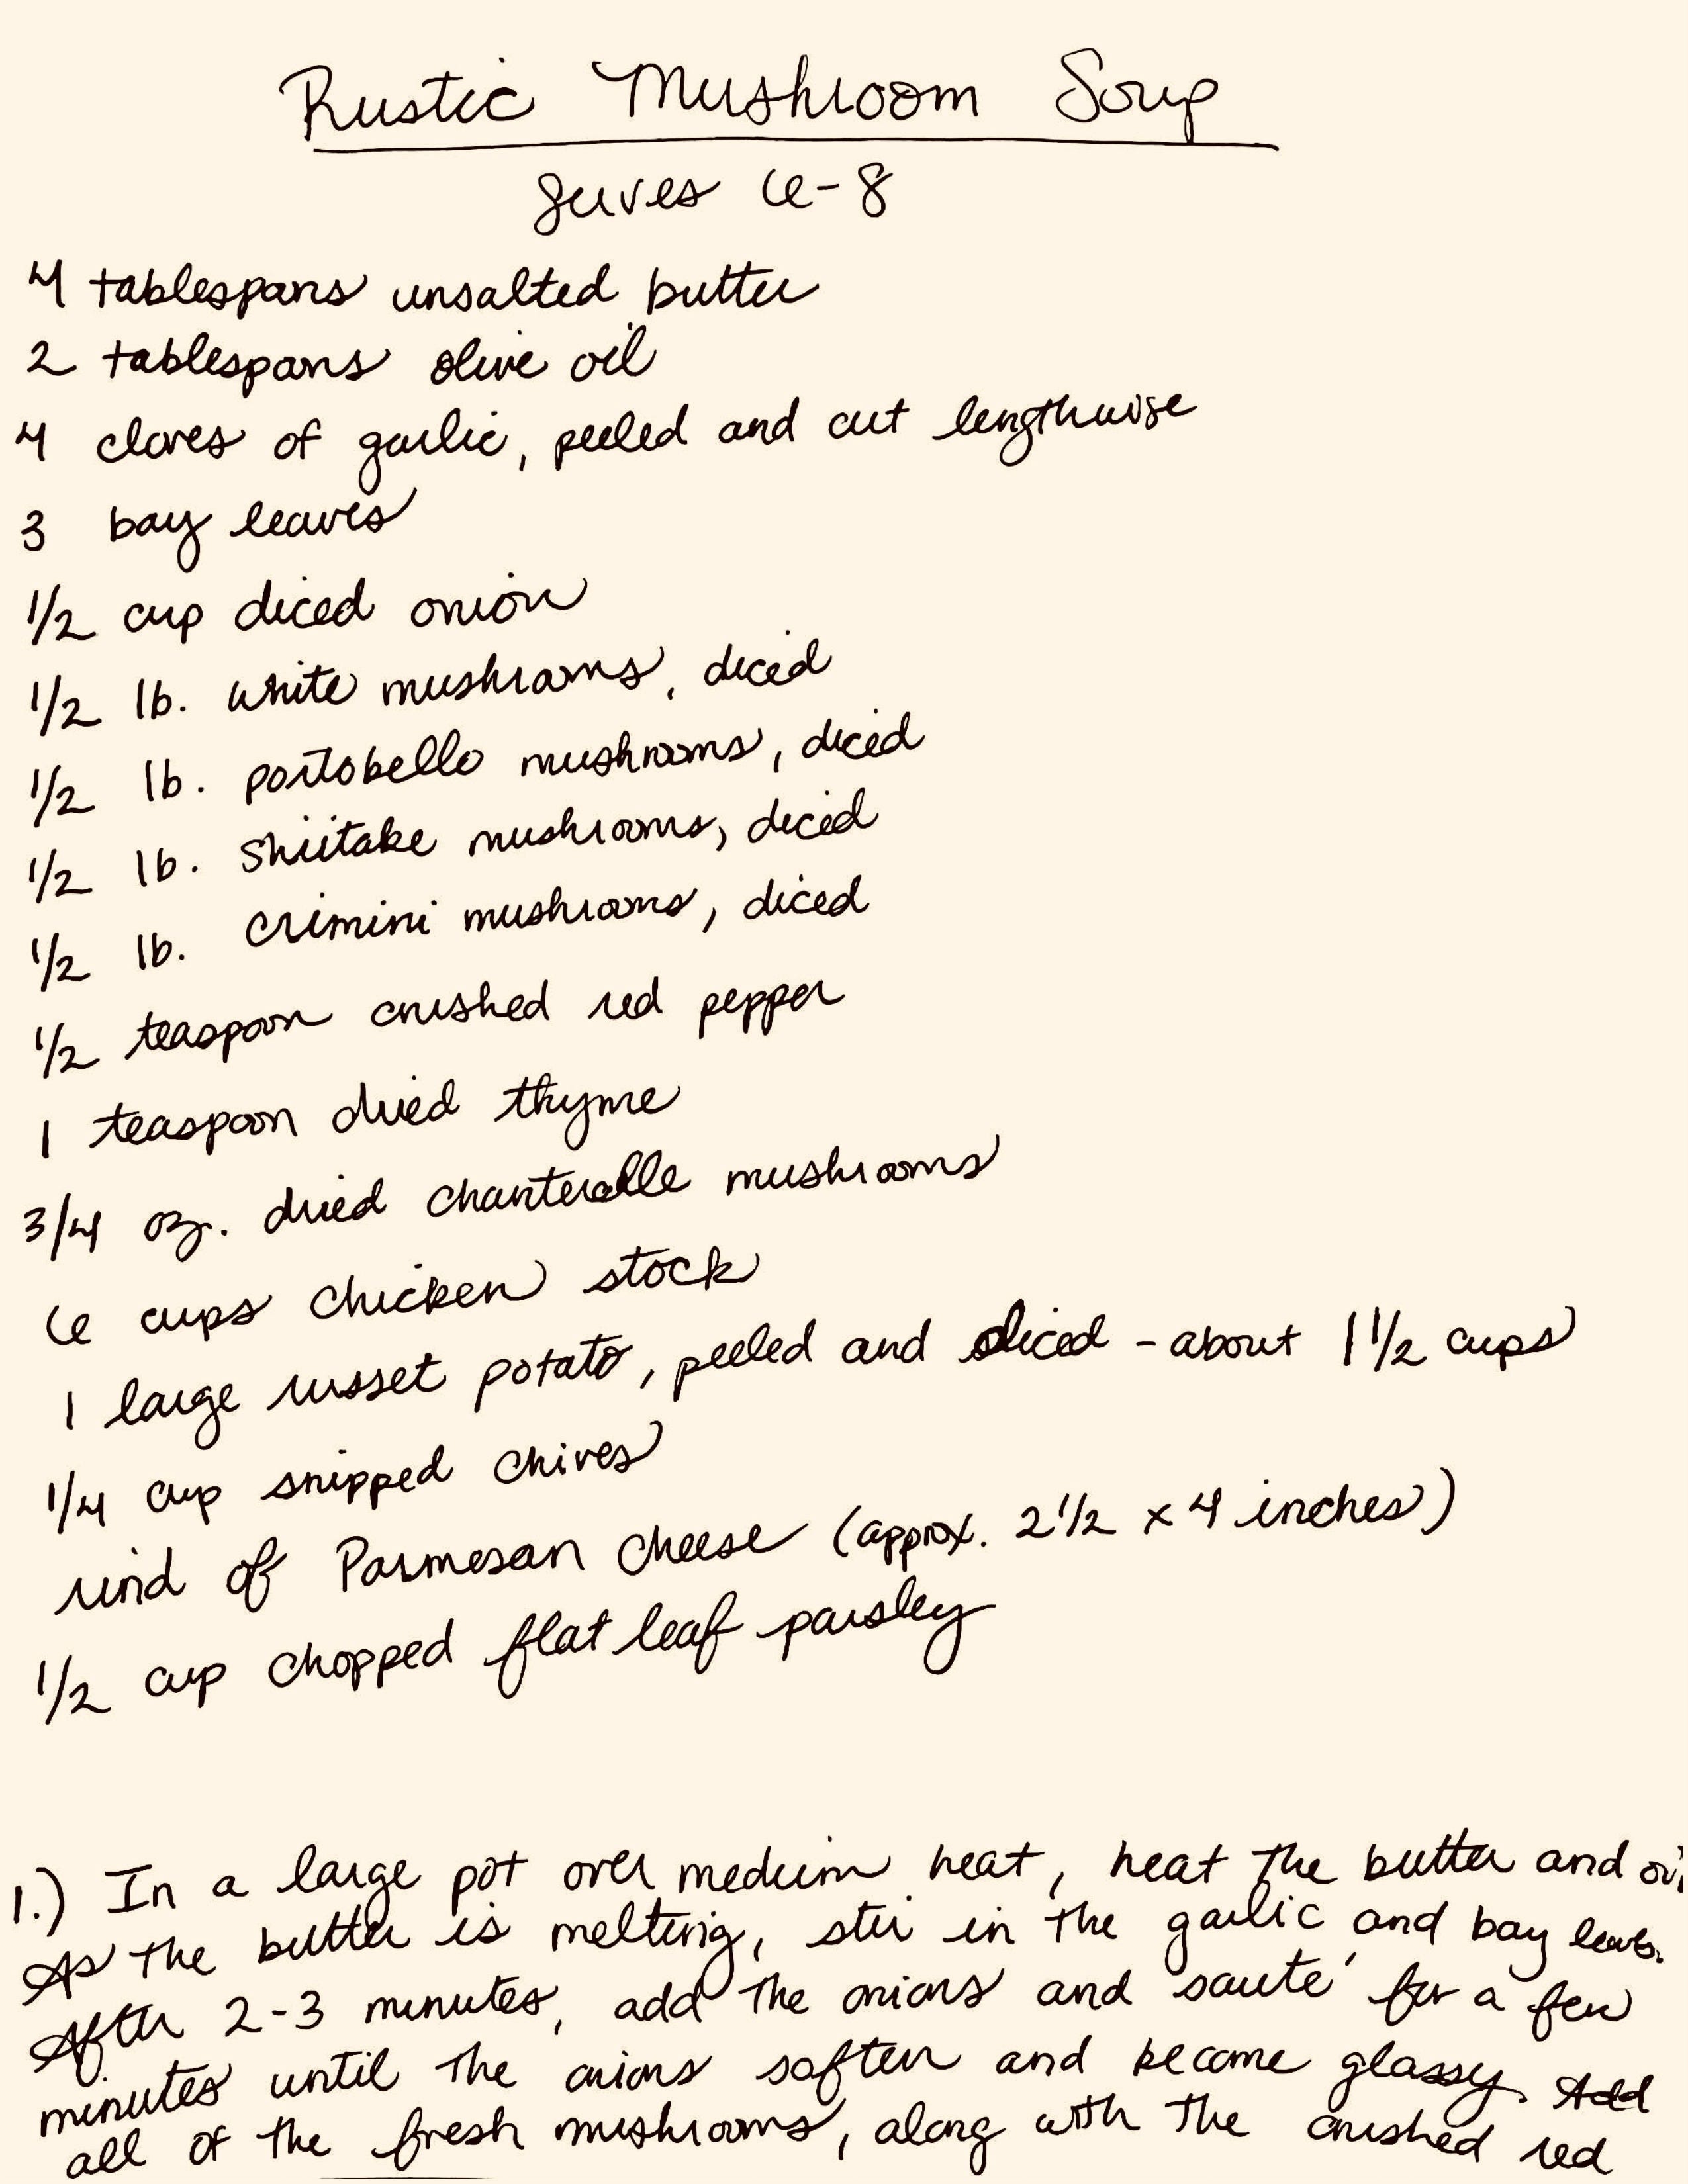 Rustic Mushroom Soup
serves 6-8
4 tablespoons unsalted butter
2 tablespoons olive oil
4 cloves of garlic, peeled and cut lengthwise
3 bay leaves
1/2 cup diced onion
1/2 lb. white mushrooms, diced
1/2 lb. portobello mushrooms, diced
1/2 lb. shiitake mushrooms, diced
1/2 lb. crimini mushrooms, diced
1/2 teaspoon crushed red pepper
1 teaspoon dried thyme
3/4 oz. dried chanterelle mushrooms
6 cups chicken stock
1 large russet potato, peeled and diced - about 1 1/2 cups
1/4 cup snipped chives
rind of Parmesan cheese (approx. 2 1/2 x 4 inches)
1/2 cup chopped flat leaf parsley
1.) In a large pot over medium heat, heat the butter and oil
As the butter is melting, stir in the garlic and bay leaves.
After 2-3 minutes, add the onions and sauté for a few
minutes until the onions soften and become glassy. Add
all of the fresh mushrooms, along with the crushed red